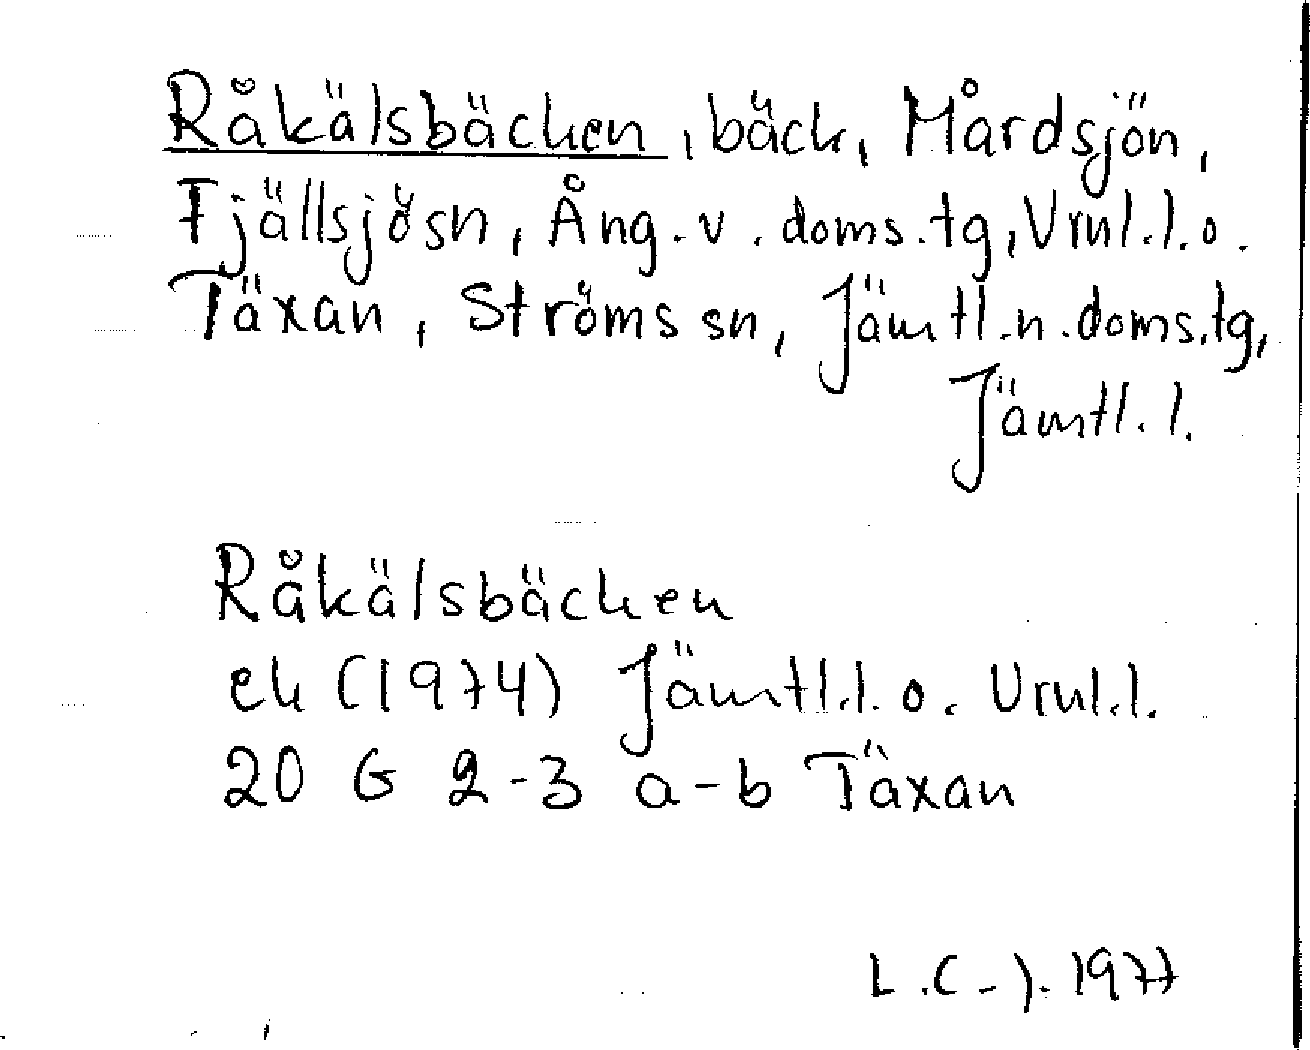 Råkälsbäcken, bäck, Mårdsjön,
Fjällsjö sn, Ång. v. doms. tg, Vrnl. l. o.
Täxan, Ströms sn, Jämtl. n. doms. tg,
Jämtl. l.
Råkälsbäcken
ek (1974) Jämtl. l. o. Vrnl. l.
20 G 2-3 a-b Täxan
L. C-J. 1977